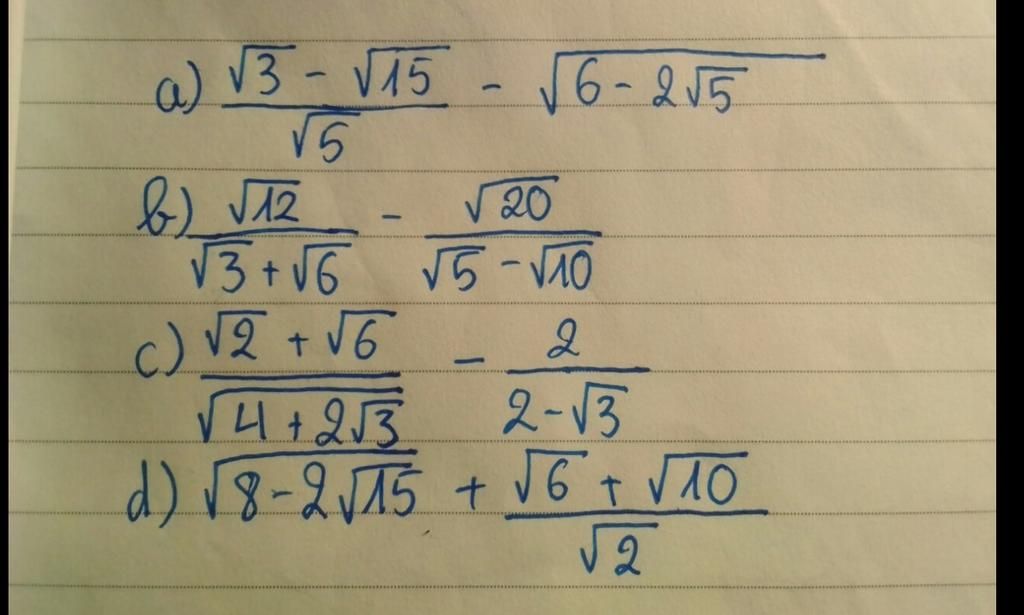 a) (√3 - √15)/√5 - √(6 - 2√5)
b) √12/(√3 + √6) - √20/(√5 - √10)
c) (√2 + √6)/√(4 + 2√3) - 2/(2 - √3)
d) √(8 - 2√15) + (√6 + √10)/√2